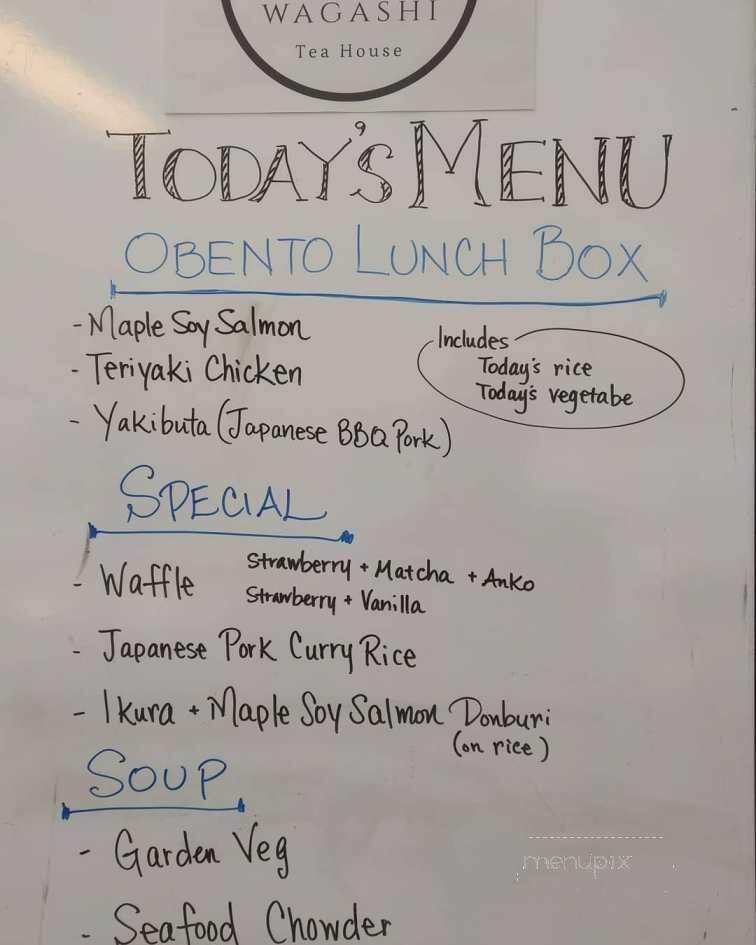 WAGASHI
Tea House
TODAY'S MENU
OBENTO LUNCH BOX
- Maple Soy Salmon
- Teriyaki Chicken
- Yakibuta (Japanese BBQ Pork)
Includes
Today's rice
Today's vegetabe
SPECIAL
- Waffle
Strawberry + Matcha + Anko
Strawberry + Vanilla
- Japanese Pork Curry Rice
- Ikura + Maple Soy Salmon Donburi
(on rice)
SOUP
- Garden Veg
- Seafood Chowder
menupix